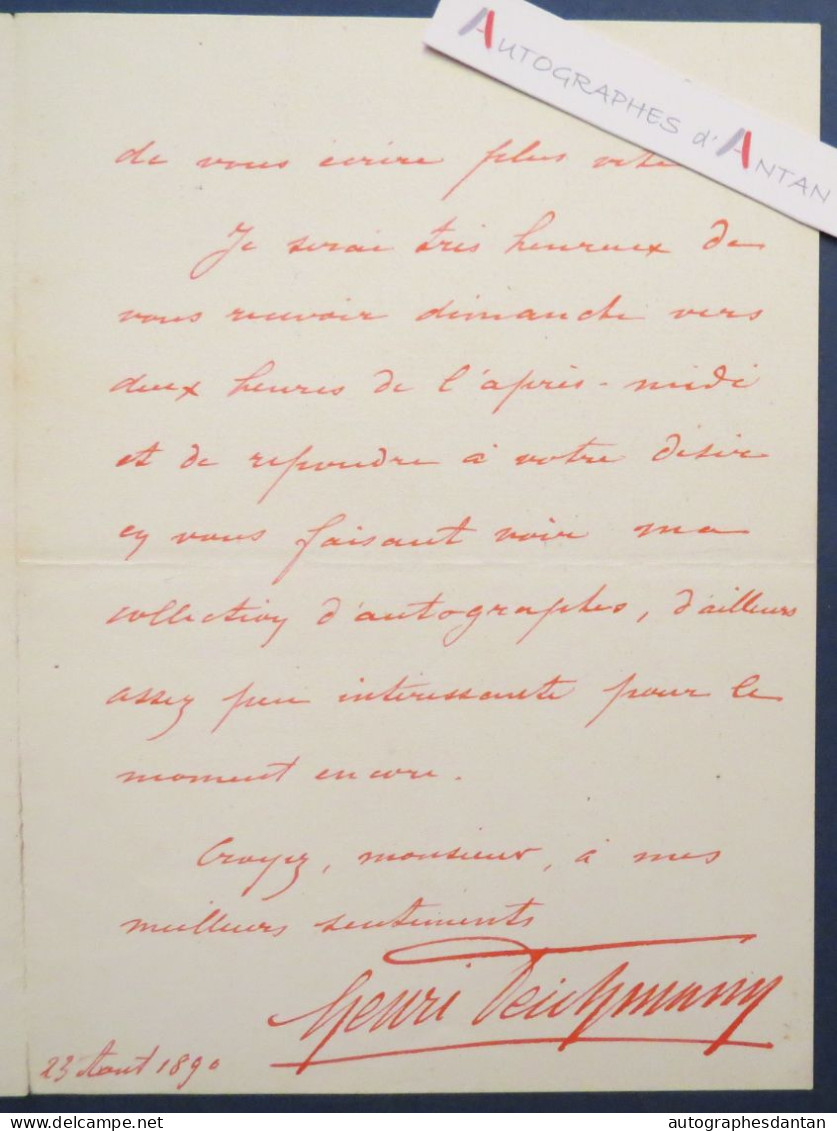 AUTOGRAPHES d'ANTAN
de vous écrire plus vite
Je serai très heureux de
vous recevoir dimanche vers
deux heures de l'après-midi
et de repondre à votre désir
en vous faisant voir ma
collection d'autographes, d'ailleurs
assez peu intéressante pour le
moment encore.
Croyez, monsieur, à mes
meilleurs sentiments
Henri Deichmann
23 Aout 1890
delcampe.net
autographesdantan